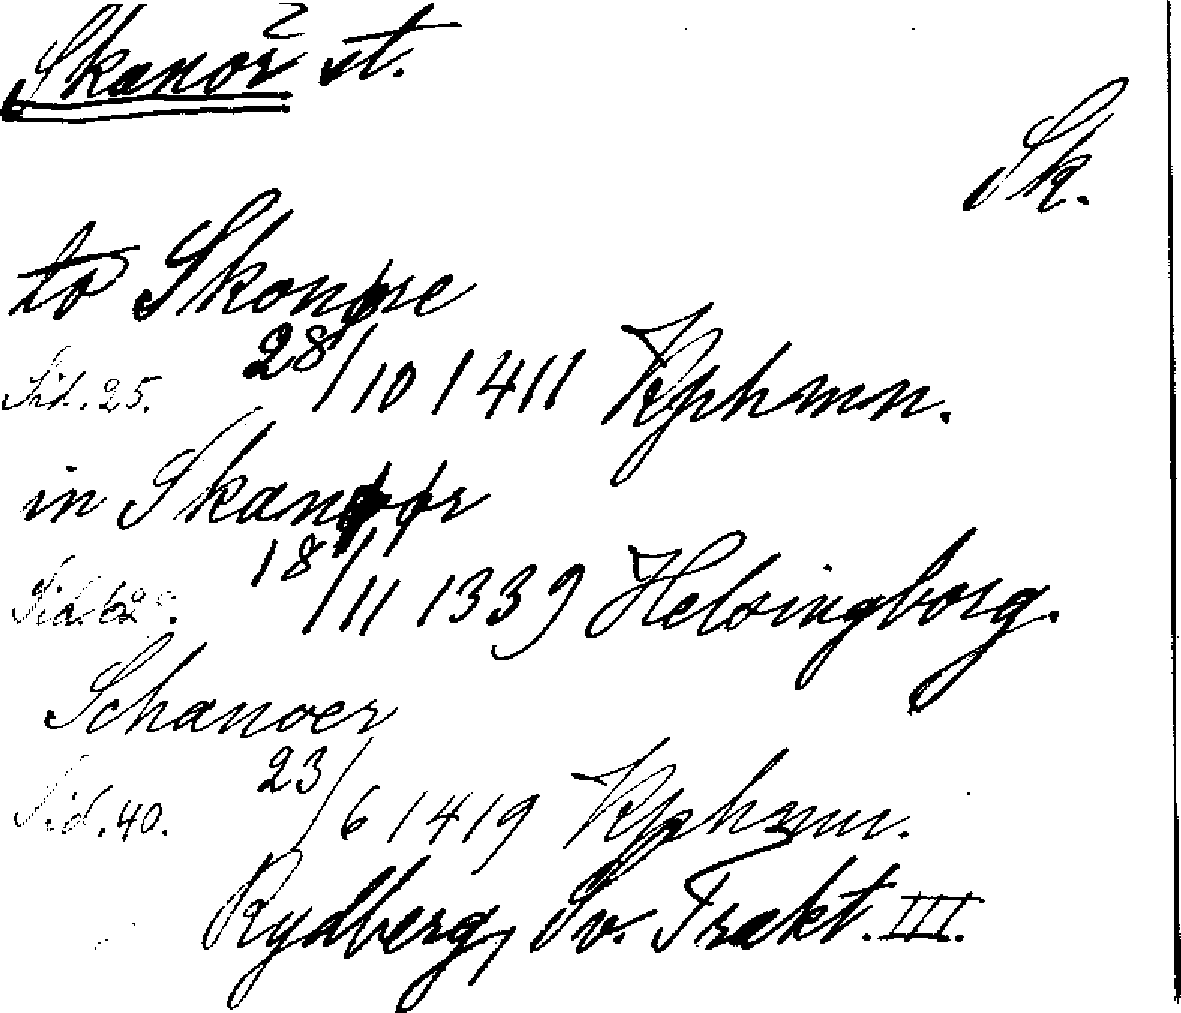 Skanör st.
Sk.
to Skonøre
Sid. 25. 28/10 1411 Kphmn.
in Skanøør
Sid. 62. 18/11 1339 Helsingborg.
Schanoer
Sid. 40. 23/6 1419 Kphmn.
Rydberg, Sv. Trakt. III.